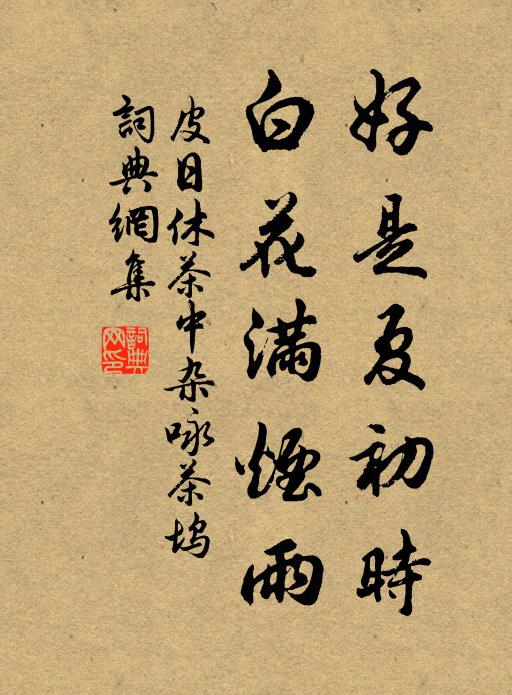 好是夏初時
白花滿煙雨
皮日休茶中杂咏茶塢
詞典網集
詞典网印